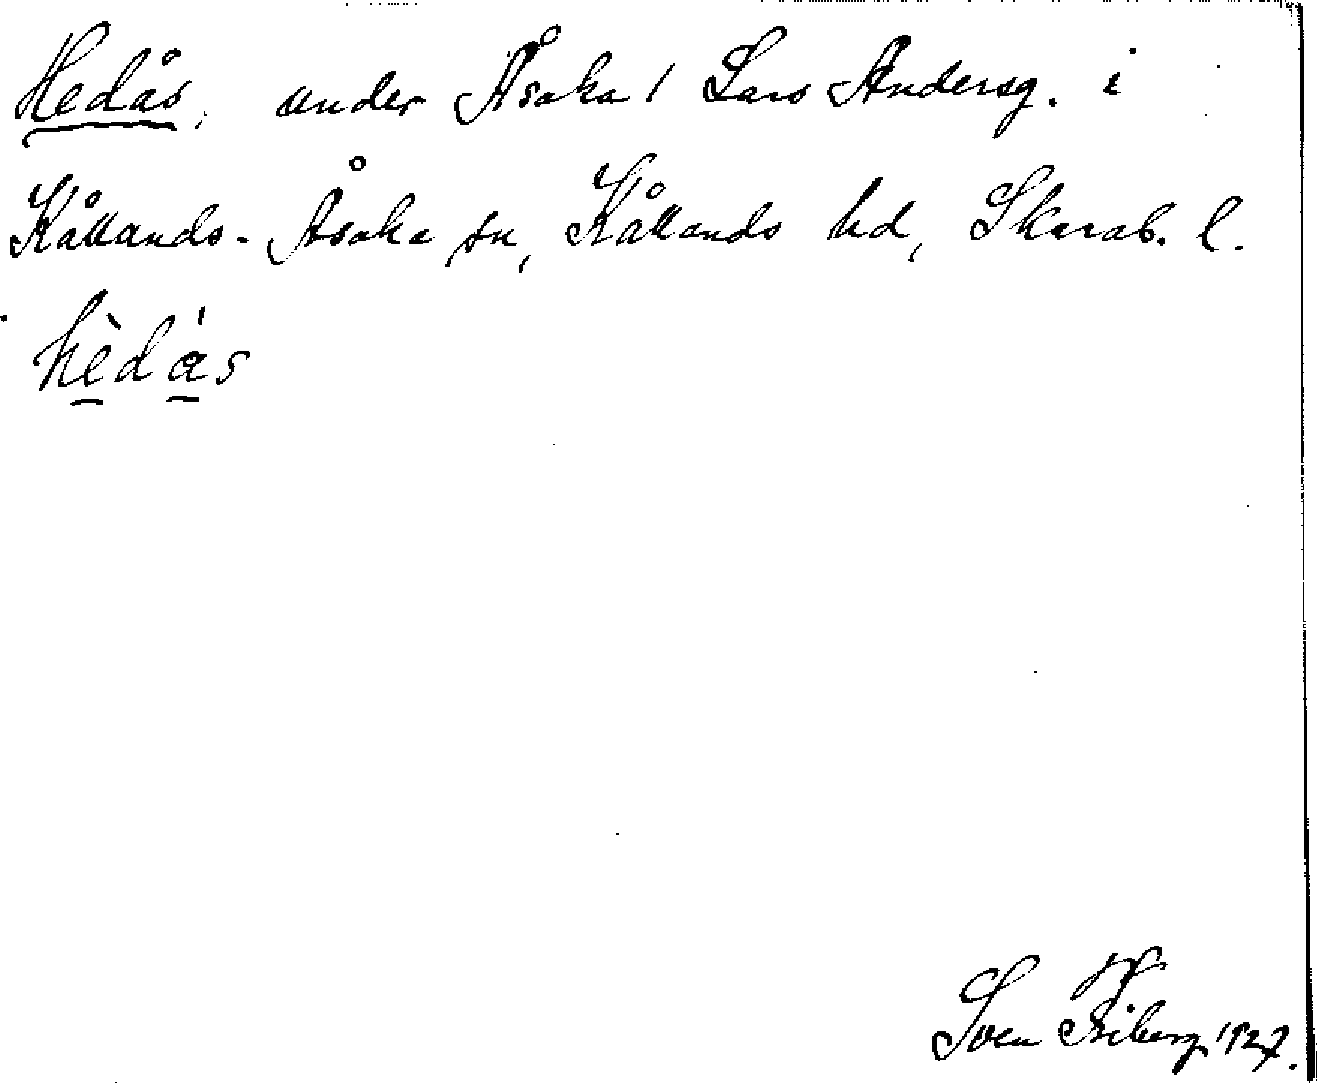 Hedås, under Åsaka / Lars Andersg. i
Kållands-Åsaka sn, Kållands hd, Skarab. l.
hèdás
Sven Friberg 1927.